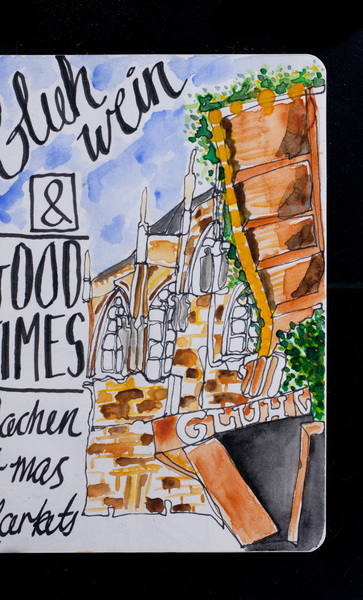 Gluh
wein
&
GOOD
TIMES
Aachen
X-mas
Markets
GLUHW